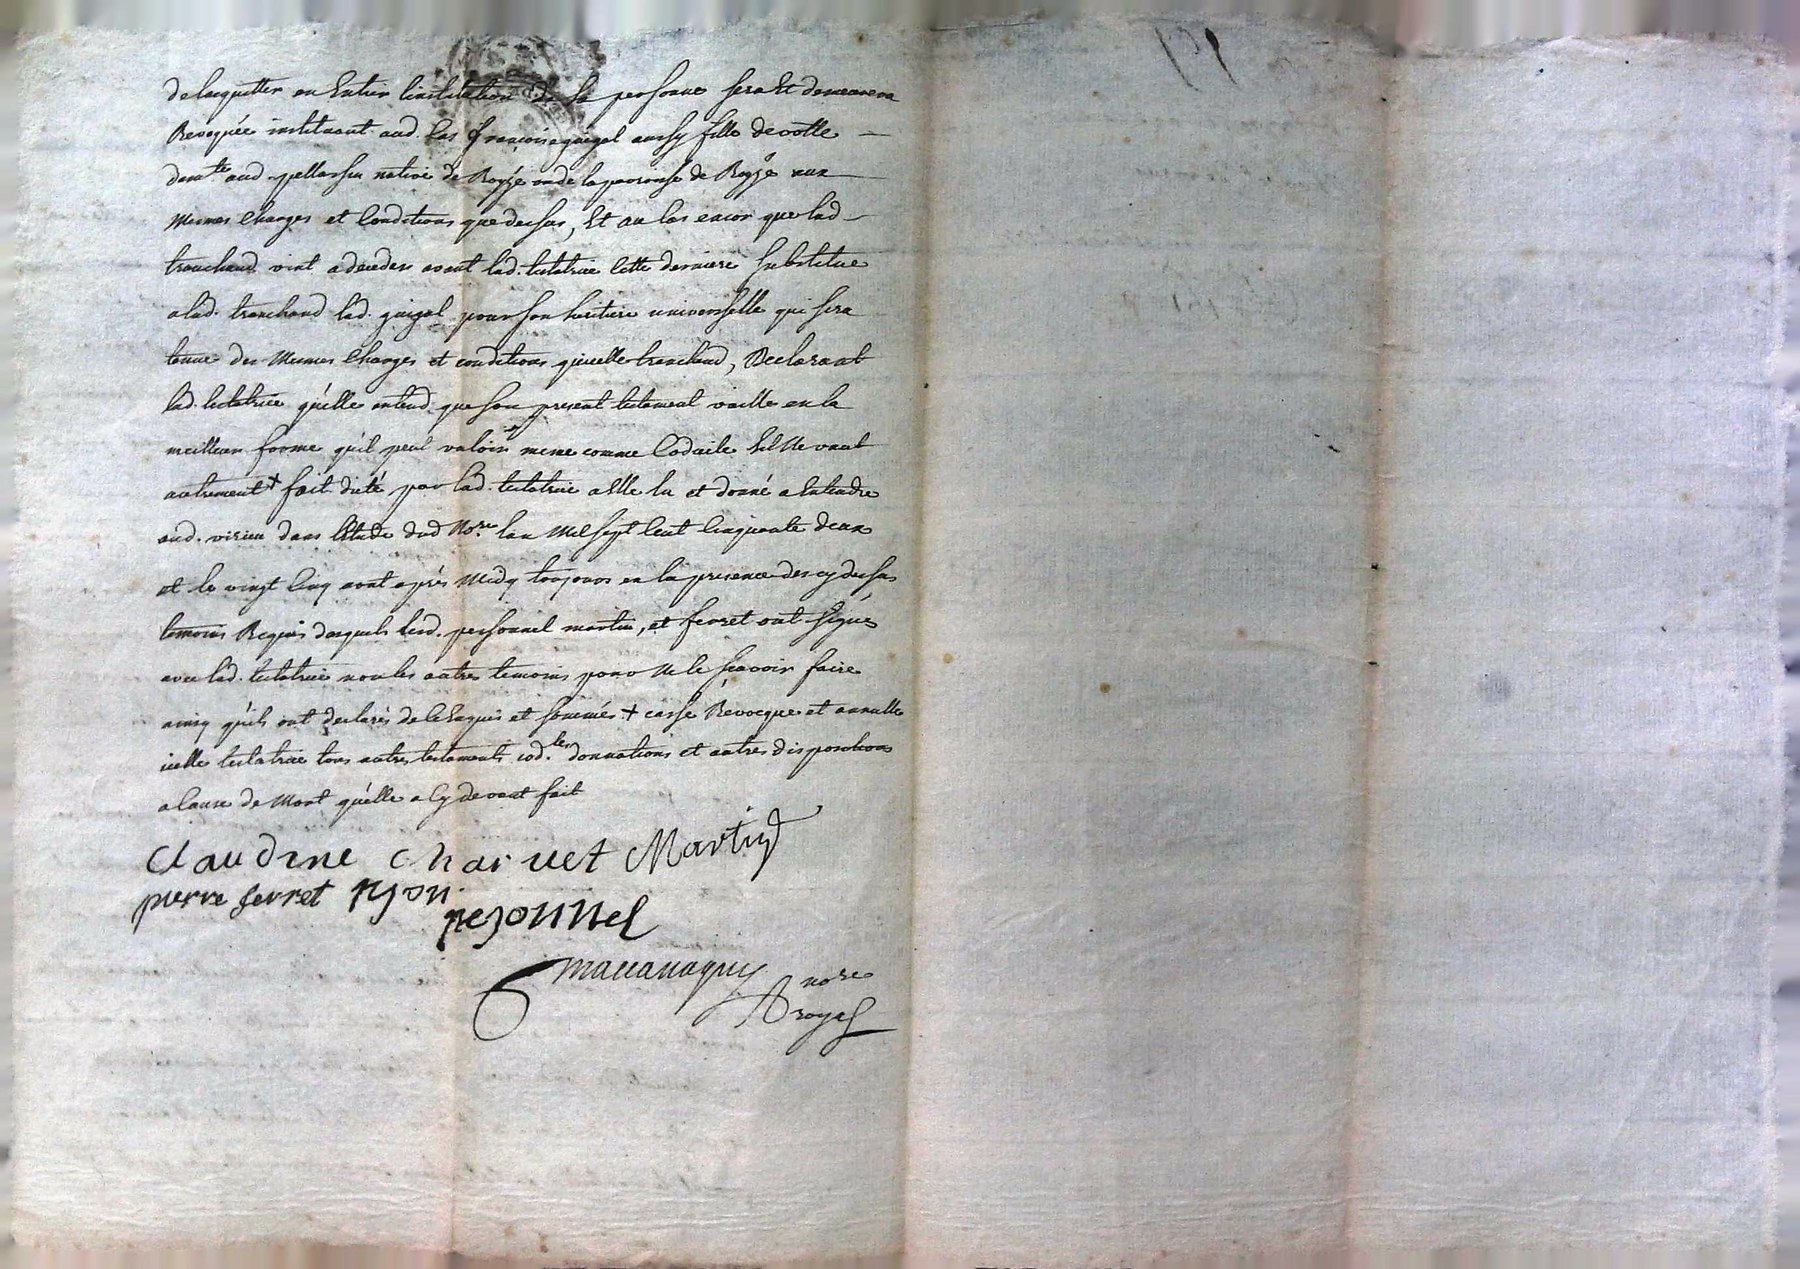 de lacquitter en Entier linstitution de Sa personne sera Et demeurera
Revoquée instituant aud. Cas françoise guigal aussy fille devotte
dem.te aud pellassin native de Royzé
mesmes Charges et Conditions que dessus, Et au Cas encor que lad
tranchand vint a deceder avant lad. testatrice Cette derniere substitue
a lad. tranchand lad. guigal pour son heritiere universselle qui sera
tenue des mesmes Charges et conditions qu'icelle tranchand, Declarant
lad. testatrice qu'elle entend que son present testament vaille en la
meilleur forme qu'il peut valoir mesme comme Codicile s'il Ne vaut
autrement + fait dicté par lad. testatrice a Elle lu et donné a Entendre
aud. virieu dans l'Etude dud No.re lan Mil sept Cent Cinquante deux
et le vingt Cinq aout après Midy toujours en la presence des cy dessus
temoins Requis desquels lesd. personnel martin, et ferret ont signés
avec lad. testatrice non les autres temoins pour Ne le sçavoir faire
ainsy qu'ils ont declarés de ce Enquis et sommés + casse Revocque et annulle
icelle testatrice tous autres testaments cod.les donnations et autres dispositions
a Cause de Mort qu'elle a Cy devant fait
Claudine Charvet Martin
pierre ferret
pezonnel
maccanaguy no.re
royal